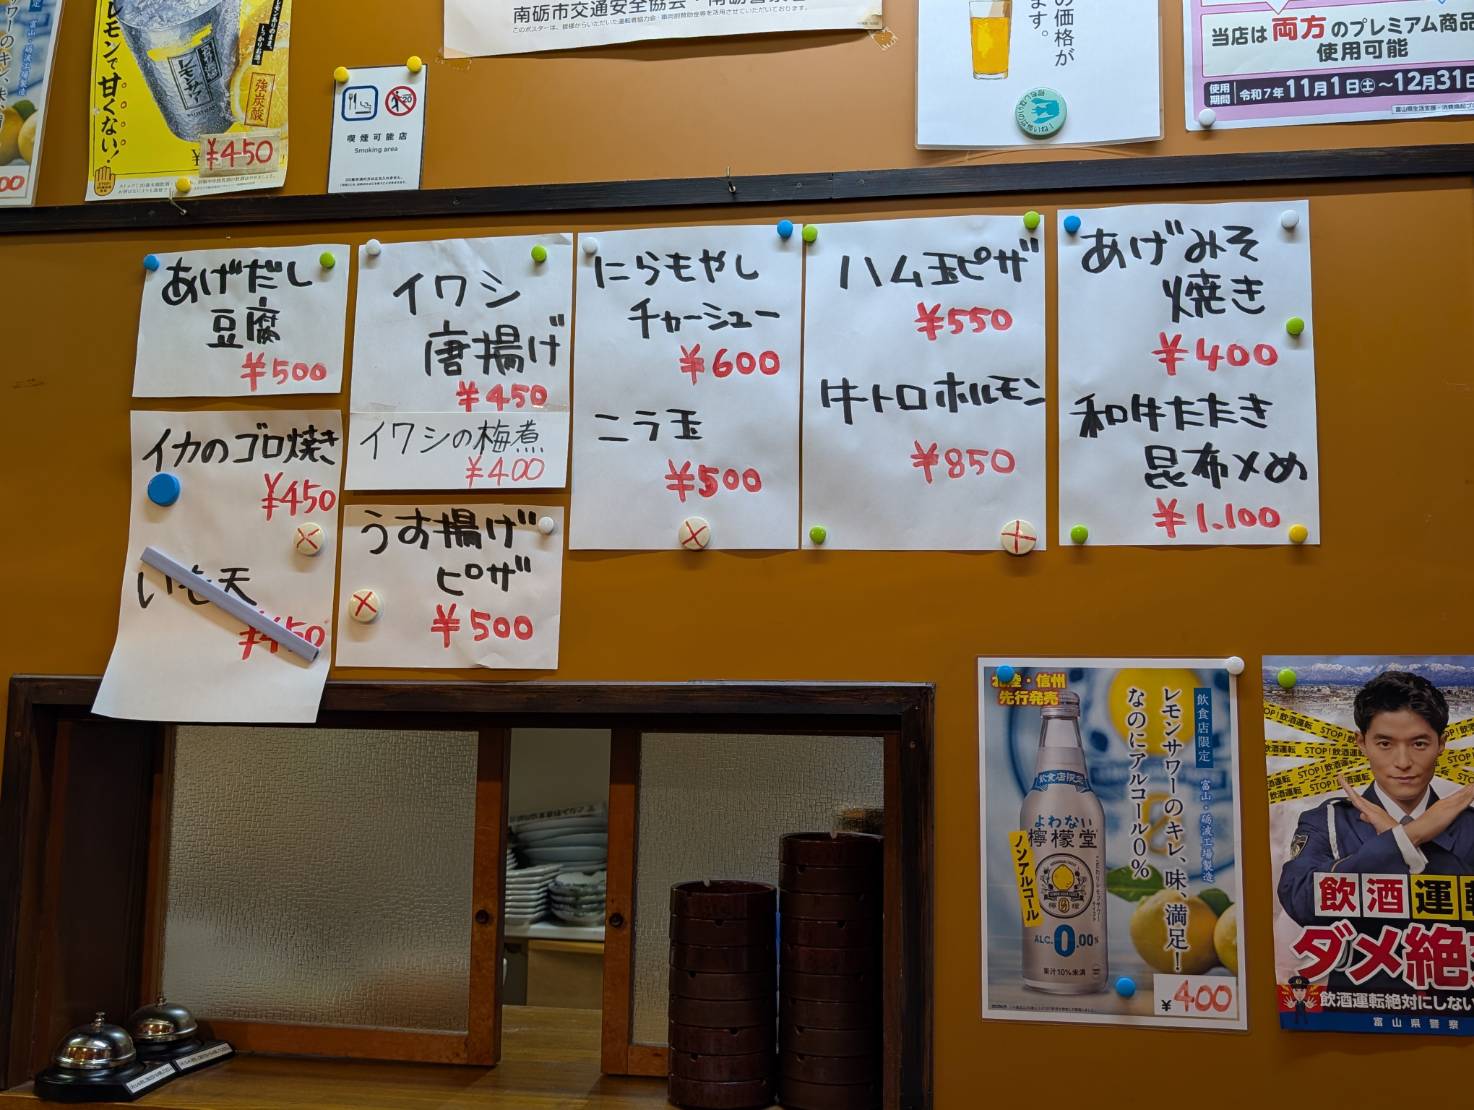 南砺市交通安全協会・南砺警察署
レモンで甘くない!
レモンサワー
強炭酸
¥450
喫煙可能店
Smoking area
の価格が
ます。
当店は両方のプレミアム商品
使用可能
使用
期間
令和7年11月1日(土)〜12月31日
あげだし
豆腐
¥500
イワシ
唐揚げ
¥450
イワシの梅煮
¥400
にらもやし
チャーシュー
¥600
ニラ玉
¥500
ハム玉ピザ
¥550
牛トロホルモン
¥850
あげみそ
焼き
¥400
和牛たたき
昆布〆め
¥1.100
イカのゴロ焼き
¥450
いも天
¥450
うす揚げ
ピザ
¥500
北陸・信州
先行発売
飲食店限定
富山・砺波工場製造
レモンサワーのキレ、味、満足!
なのにアルコール0%
飲食店限定
よわない
檸檬堂
ノンアルコール
ALC.0.00%
果汁10%未満
¥400
STOP!飲酒運転
飲酒運
ダメ絶
飲酒運転絶対にしない
富山県警察